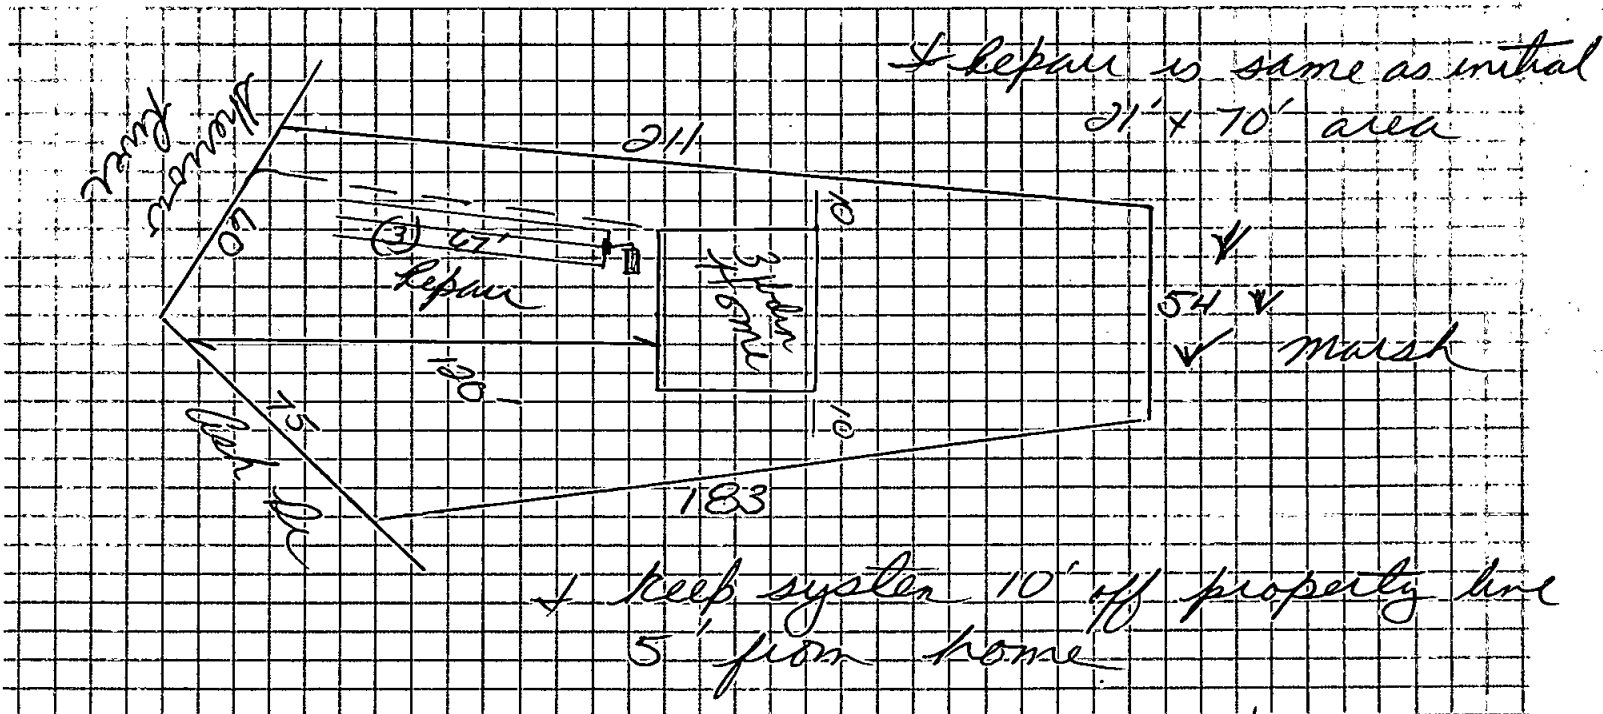 * Repair is same as initial
21' x 70' area
211
60
10
③ 67'
Repair
3 bdrm
Home
54
marsh
120'
75
10'
183
* Keep system 10' off property line
5' from home